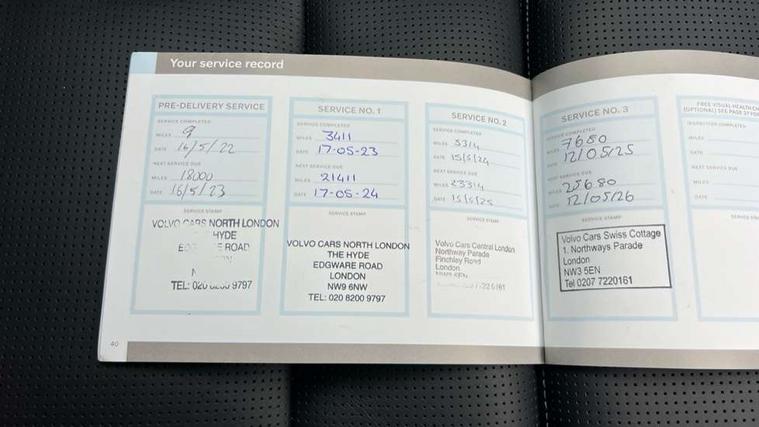 Your service record
PRE-DELIVERY SERVICE
SERVICE COMPLETED
MILES 9
DATE 16/5/22
NEXT SERVICE DUE
MILES 18000
DATE 16/5/23
SERVICE STAMP
VOLVO CARS NORTH LONDON
HYDE
ROAD
TEL: 020 9797
SERVICE NO. 1
SERVICE COMPLETED
MILES 3411
DATE 17-05-23
NEXT SERVICE DUE
MILES 21411
DATE 17-05-24
SERVICE STAMP
VOLVO CARS NORTH LONDON
THE HYDE
EDGWARE ROAD
LONDON
NW9 6NW
TEL: 020 8200 9797
SERVICE NO. 2
SERVICE COMPLETED
MILES 5314
DATE 15/5/24
NEXT SERVICE DUE
MILES 23314
DATE 15/5/25
SERVICE STAMP
Volvo Cars Central London
Northway Parade
Finchley Road
London
SERVICE NO. 3
SERVICE COMPLETED
MILES 7680
DATE 12/05/25
NEXT SERVICE DUE
MILES 25680
DATE 12/05/26
SERVICE STAMP
Volvo Cars Swiss Cottage
1, Northways Parade
London
NW3 5EN
Tel 0207 7220161
FREE VISUAL HEALTH
(OPTIONAL) SEE PAGE
INSPECTION COMPLETED
MILES
DATE
NEXT SERVICE DUE
MILES
DATE
SERVICE
40